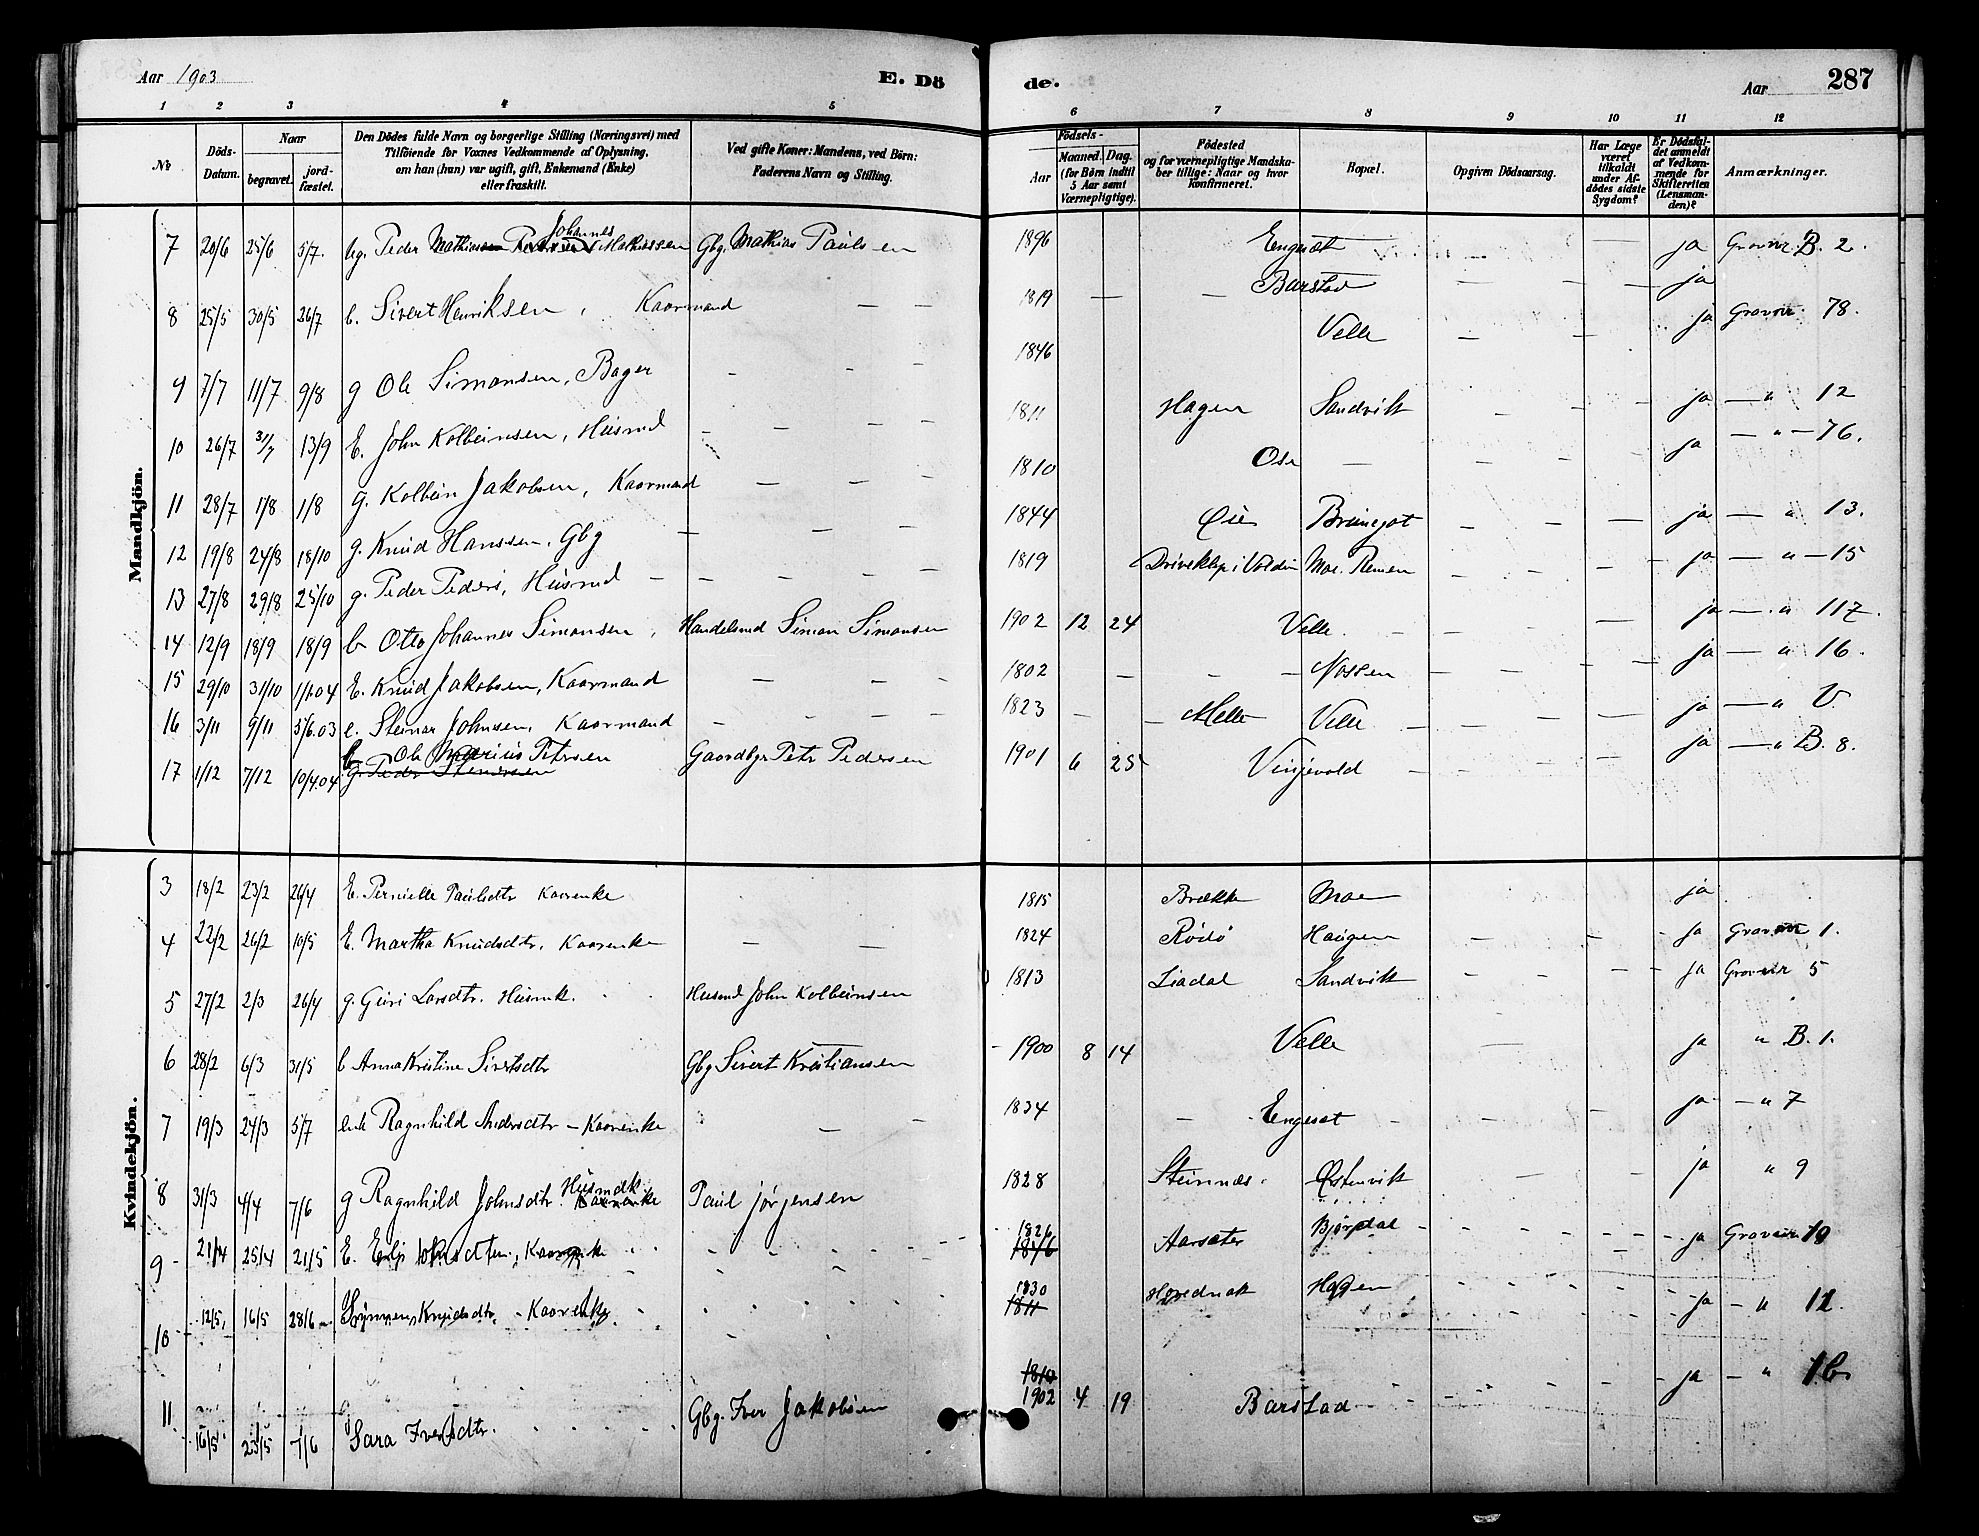 Aar 1903 E. Dö
de. Aar 287
1 2 3 4 5 6 7 8 9 10 11 12
No
Döds-Datum.
Naar
begravet.
jord-fæstet.
Den Dödes fulde Navn og borgerlige Stilling (Næringsvei) med
Tilföiende for Voxnes Vedkommende af Oplysning,
om han (hun) var ugift, gift, Enkemand (Enke)
eller fraskilt.
Ved gifte Koner: Mandens, ved Börn:
Faderens Navn og Stilling.
Födsels-
Aar
Maaned. Dag.
(for Börn indtil
5 Aar samt
Værnepligtige).
Födested
og for værnepligtige Mandska-
ber tillige: Naar og hvor
konfirmeret.
Bopæl.
Opgiven Dödsaarsag.
Har Læge
været
tilkaldt
under Af-
dödes sidste
Sygdom?
Er Dödsfal-
det anmeldt
af Vedkom-
mende for
Skifteretten
(Lensman-
den)?
Anmærkninger.
Mandkjön.
7 20/6 25/6 5/7. ug. Peder Johannes Mathiassen Gbg. Mathias Paulsen 1896 Engeset ja Gravnr B. 2.
8 25/5 30/5 26/7 e. Sivert Henriksen, Kaarmand 1819 Barstad ja
9 7/7 11/7 9/8 g Ole Simonsen, Bager 1846 Velle ja Gravnr. 78.
10 26/7 31/7 13/9 E. John Kolbeinsen, Husmd 1811 Hagen Sandvik ja " 12
11 28/7 1/8 1/8 g. Kolbein Jakobsen, Kaarmand 1810 Ose ja " 76.
12 19/8 24/8 18/10 g. Knud Hanssen, Gbg 1844 Øie Bruneset ja " 13.
13 27/8 29/8 25/10 g. Peder Peders, Husmd 1819 Driveklep i Volden Moe. Remen ja " 15
14 12/9 18/9 18/9 b Otto Johannes Simonsen, Handelsmd Simon Simonsen 1902 12 24 Velle. ja " 117.
15 29/10 31/10 1/1.04 E. Knud Jakobsen, Kaarmand 1802 Nossen ja " 16.
16 3/11 9/11 5/6.03 e. Steinar Johnsen, Kaarmand 1823 Melle Velle ja " V.
17 1/12 7/12 10/4.04 b Ole Magnus Petersen Gaardbgr Petr Pedersen 1901 6 25 Vinjevold ja " B. 8.
g. Peder Steinsen
Kvindekjön.
3 18/2 23/2 26/4 E. Pernielle Paulsdtr Kaarenke 1815 Brække Moe ja
4 22/2 26/2 10/5 E. Martha Knudsdtr. Kaarenke 1824 Rödö Haugen ja Gravnr 1.
5 27/2 2/3 26/4 g. Guri Larsdtr. Husmk. Husmd John Kolbeinsen 1813 Liadal Sandvik ja Gravnr 5
6 28/2 6/3 31/5 b Anna Kristine Sivertsdtr Gbg Sivert Kristiansen 1900 8 14 Velle ja " B. 1.
7 19/3 24/3 5/7 enk Ragnhild Andersdtr - Kaarenke 1834 Engeset ja " 7
8 31/3 4/4 7/6 g Ragnhild Johnsdtr. Husmdk. Kaarenke Paul Jørgensen 1828 Steinnes Østenvik ja " 9
9 21/4 25/4 21/5 E. Johnsdtr, Kaarenke 1826 1876 Aarsæter Bjørdal ja Gravnr 10
10 12/5 16/5 28/6 Knudsdtr. - Kaarenke 1830 1811 Hovednak Hagen ja " 12.
11 16/5 23/5 7/6 Sara Iversdtr. Gbg. Iver Jakobsen 1810 1902 4 19 Barstad ja "